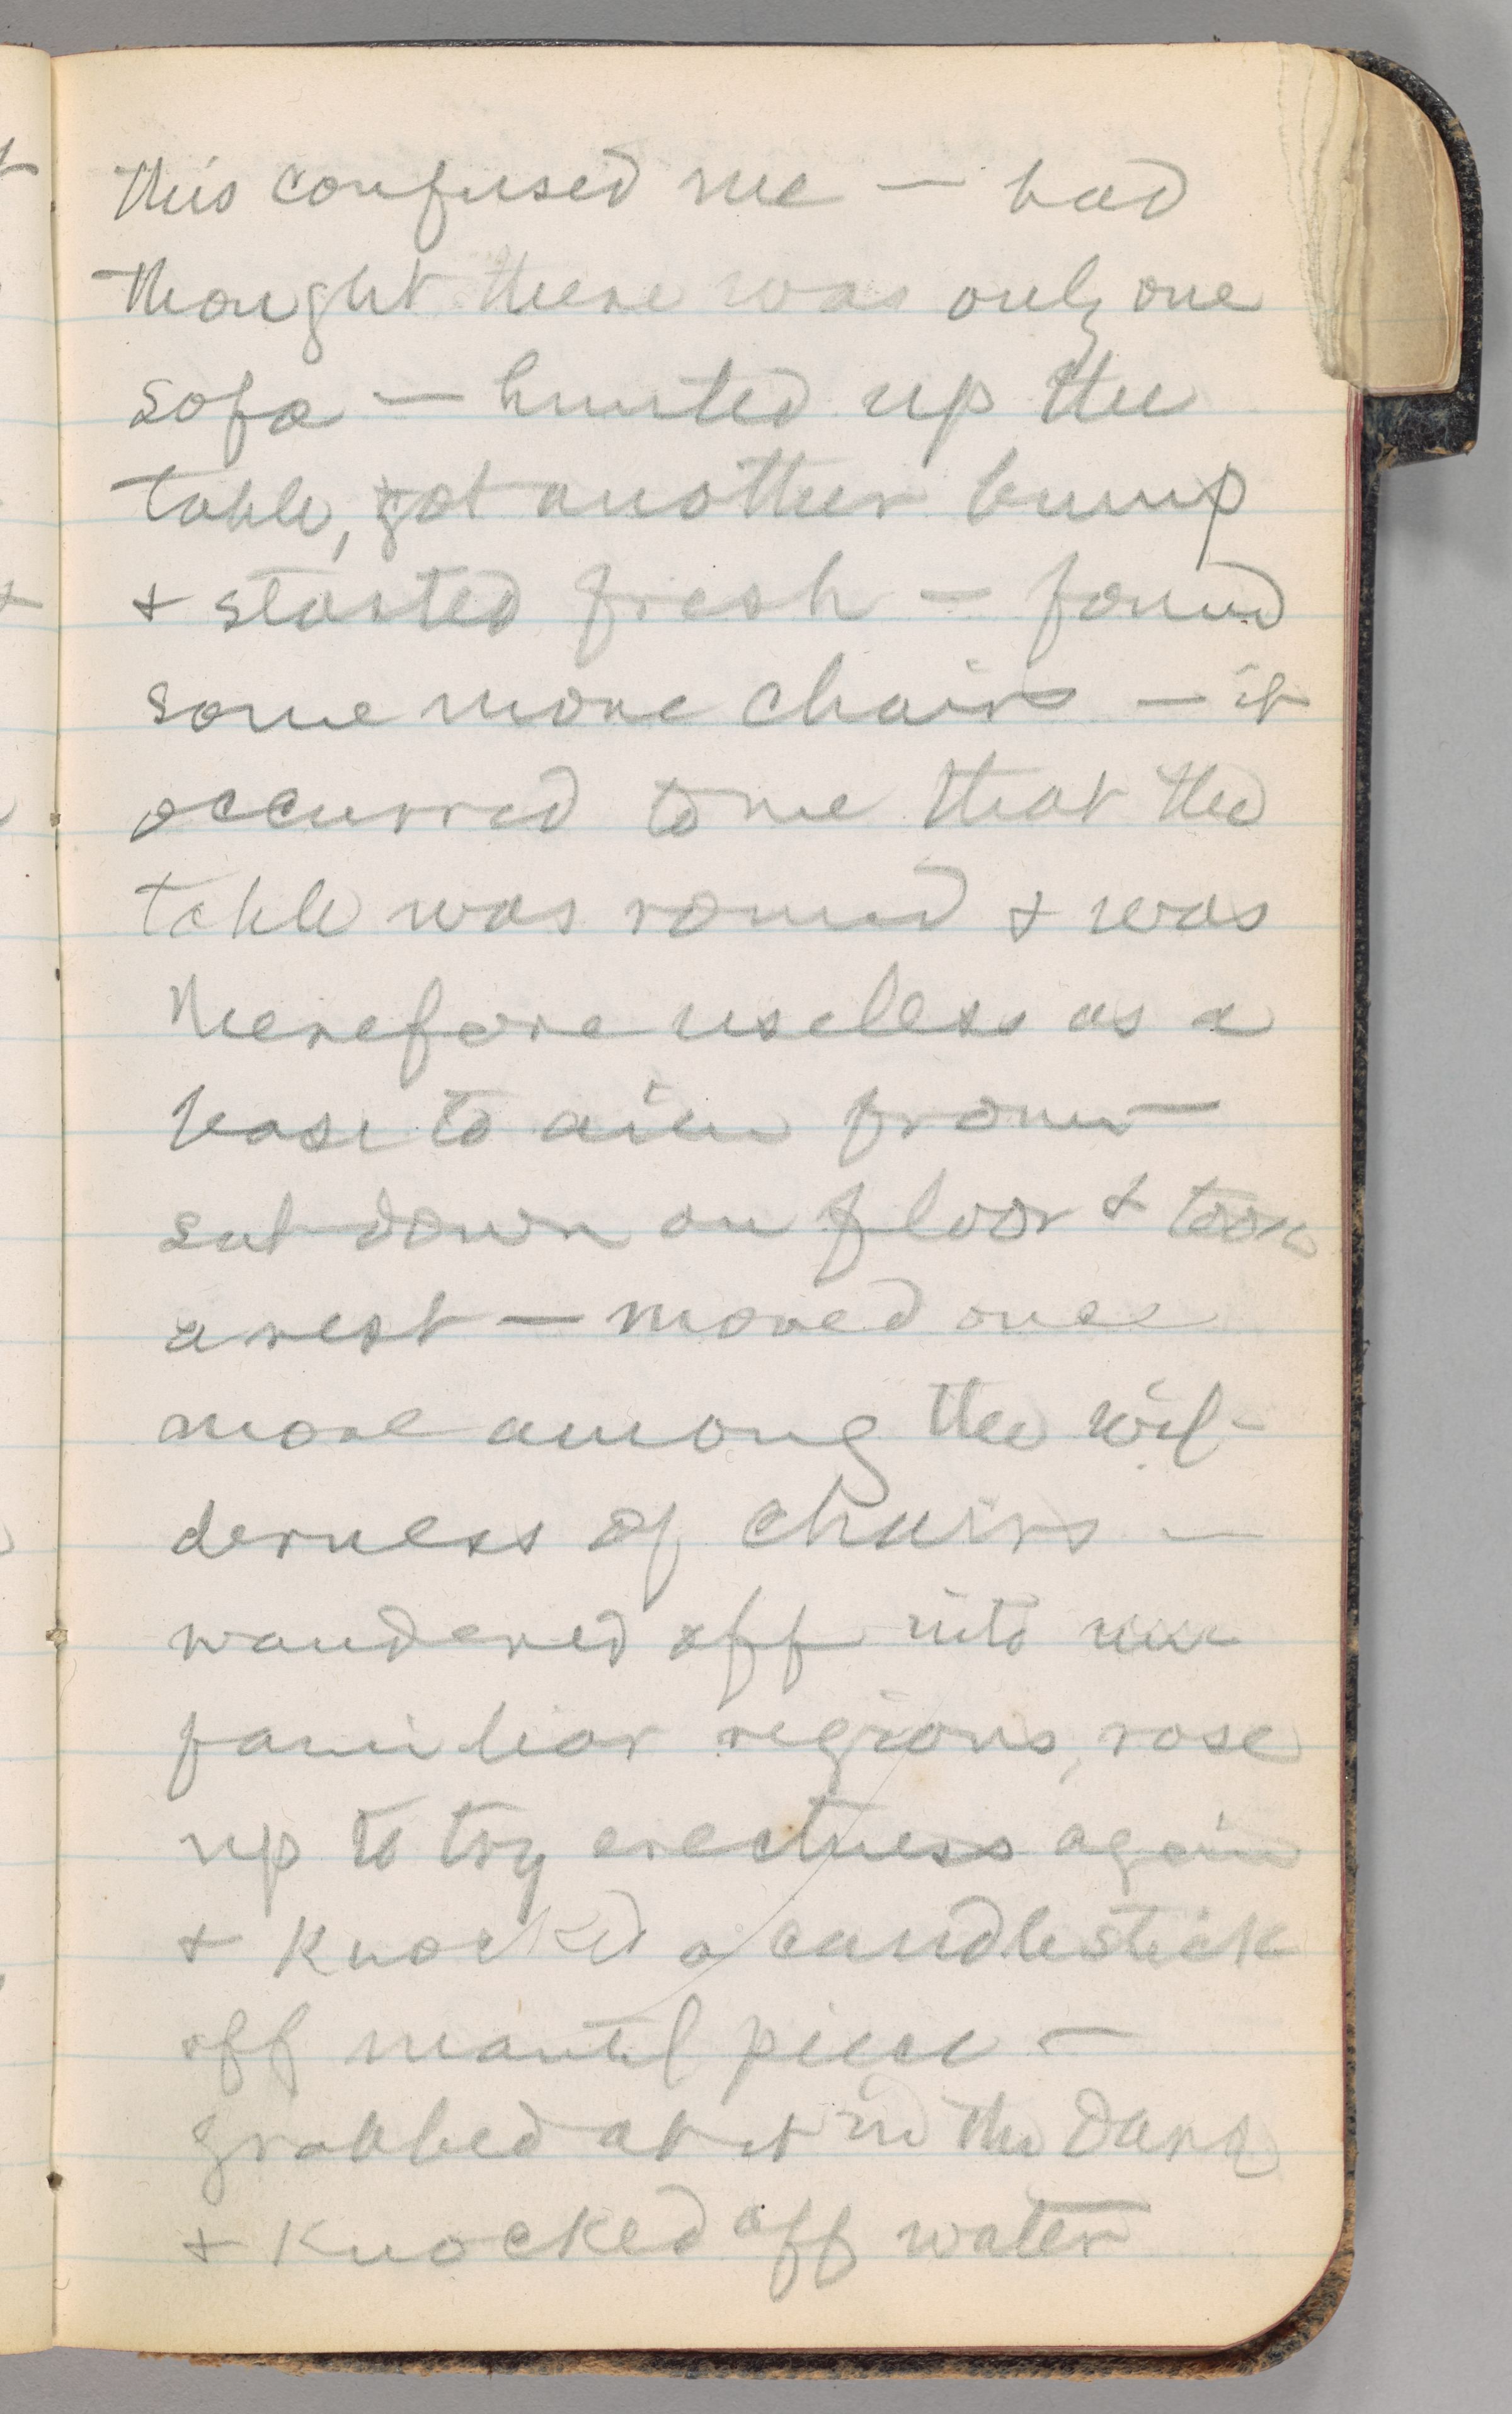 this confused me — had
thought there was only one
sofa — hunted up the
table, got another bump
& started fresh — found
some more chairs — it
occurred to me that the
table was round & was
therefore useless as a
base to aim from —
sat down on floor & took
a rest — moved once
more among the wil-
derness of chairs —
wandered off into un-
familiar regions, rose
up to try erectness again
& knocked a candlestick
off mantel piece —
grabbed at it in the dark
& knocked off water